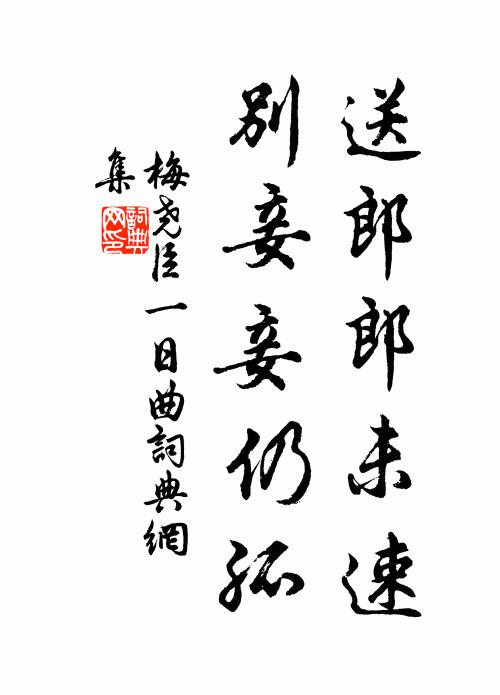 送郎郎未速
別妾妾仍孤
梅堯臣一日曲詞典網
集
詞典
网印